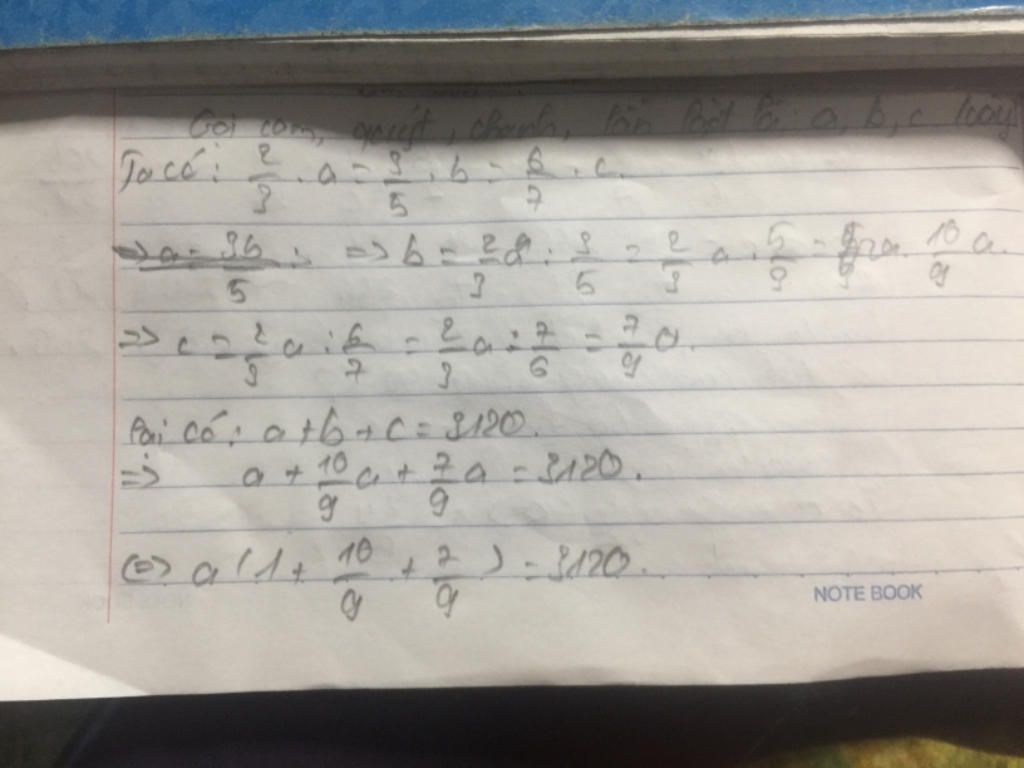 Gọi cam, quýt, chanh, lần lượt là: a, b, c (cây)
Ta có: 2/3 . a = 3/5 . b = 6/7 . c.
=> b = 2/3 a : 3/5 = 2/3 a . 5/3 = 10/9 a.
=> c = 2/3 a : 6/7 = 2/3 a : 7/6 = 7/9 a.
Lại có: a + b + c = 3120.
=> a + 10/9 a + 7/9 a = 3120.
<=> a (1 + 10/9 + 7/9) = 3120.
NOTE BOOK